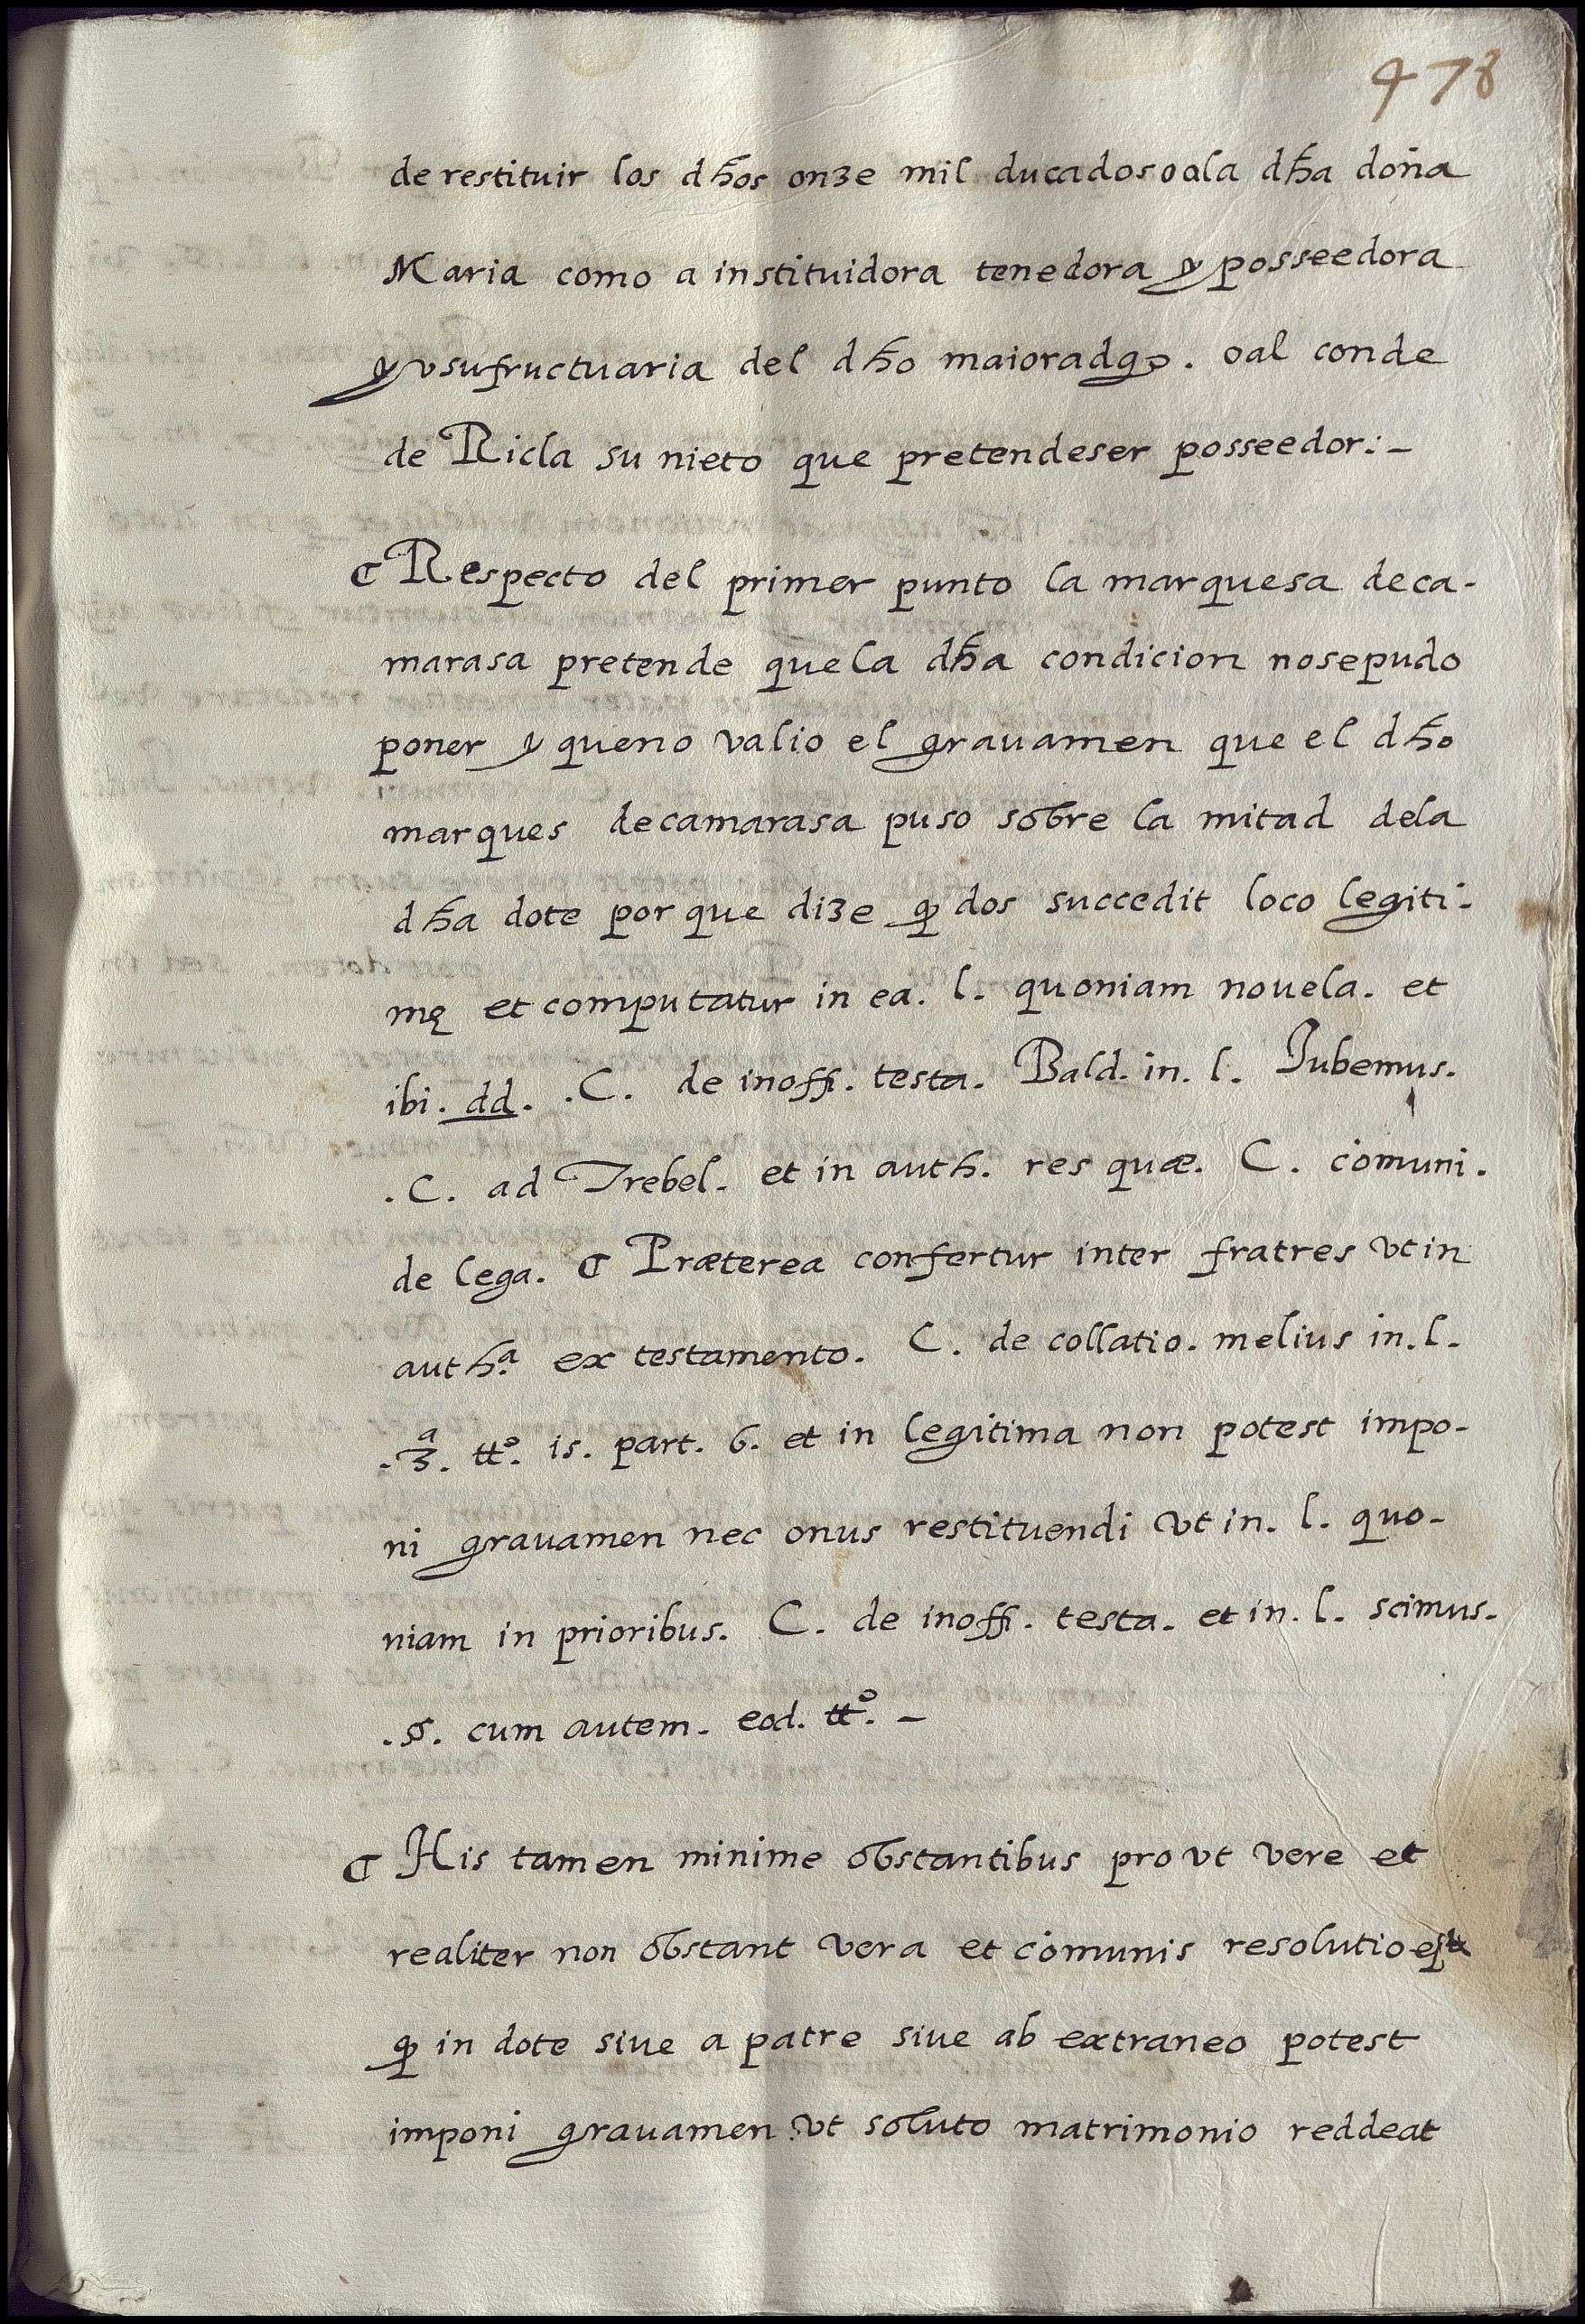 478
de restituir los dħos onze mil ducados o ala dħa doña
Maria como a instituidora tenedora y posseedora
y vsufructuaria del dħo maioradgo. o al conde
de Ricla su nieto que pretende ser posseedor:-
¶ Respecto del primer punto la marquesa de ca-
marasa pretende que la dħa condicion no se pudo
poner y que no valio el grauamen que el dħo
marques de camarasa puso sobre la mitad dela
dħa dote por que dize ꝙ dos succedit loco legiti-
mę et computatur in ea. l. quoniam nouela. et
ibi. dd. .C. de inoffi. testa. Bald. in. l. Iubemus.
.C. ad Trebel. et in auth. res quæ. C. comuni.
de lega. ¶ Præterea confertur inter fratres vt in
auth.ª ex testamento. C. de collatio. melius in. l.
.3.ª ttº. 15. part. 6. et in legitima non potest impo-
ni grauamen nec onus restituendi vt in. l. quo-
niam in prioribus. C. de inoffi. testa. et in. l. scimus.
.§. cum autem. eod. ttº. -
¶ His tamen minime obstantibus pro vt vere et
realiter non obstant vera et comunis resolutio est
ꝙ in dote siue a patre siue ab extraneo potest
imponi grauamen vt soluto matrimonio reddeat